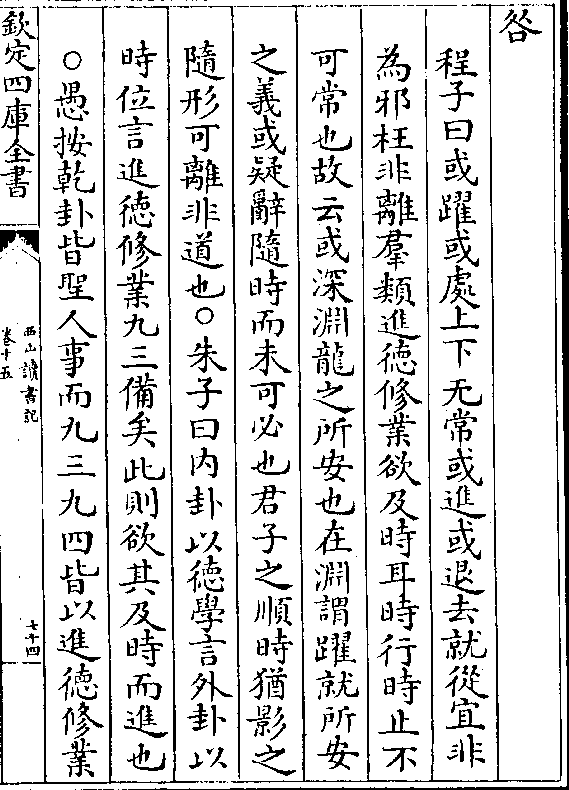 咎
程子曰或躍或處上下无常或進或退去就從宜非
為邪枉非離羣類進德修業欲及時耳時行時止不
可常也故云或深淵龍之所安也在淵謂躍就所安
之義或疑辭隨時而未可必也君子之順時猶影之
隨形可離非道也○朱子曰内卦以德學言外卦以
時位言進德修業九三備矣此則欲其及時而進也
○愚按乾卦皆聖人事而九三九四皆以進德修業
欽定四庫全書
西山讀書記
卷十五
七十四